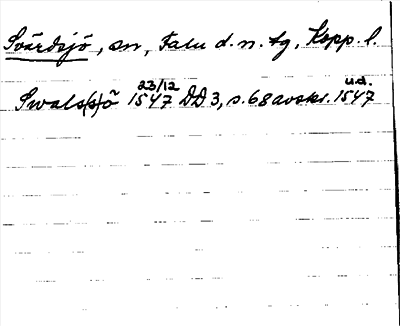 Svärdsjö, sn, Falu d. n. tg, Kopp. l.
Swals(s)ö 23/12 1547 DD 3, s. 68 avskr. u.d. 1547